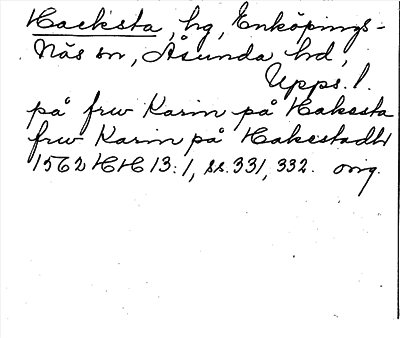 Hacksta, hg, Enköpings-
Näs sn, Åsunda hd,
Upps. l.
på frw Karin på Hakesta
frw Karin på Hakestadh
1562 HH 13:1, ss. 331, 332. orig.